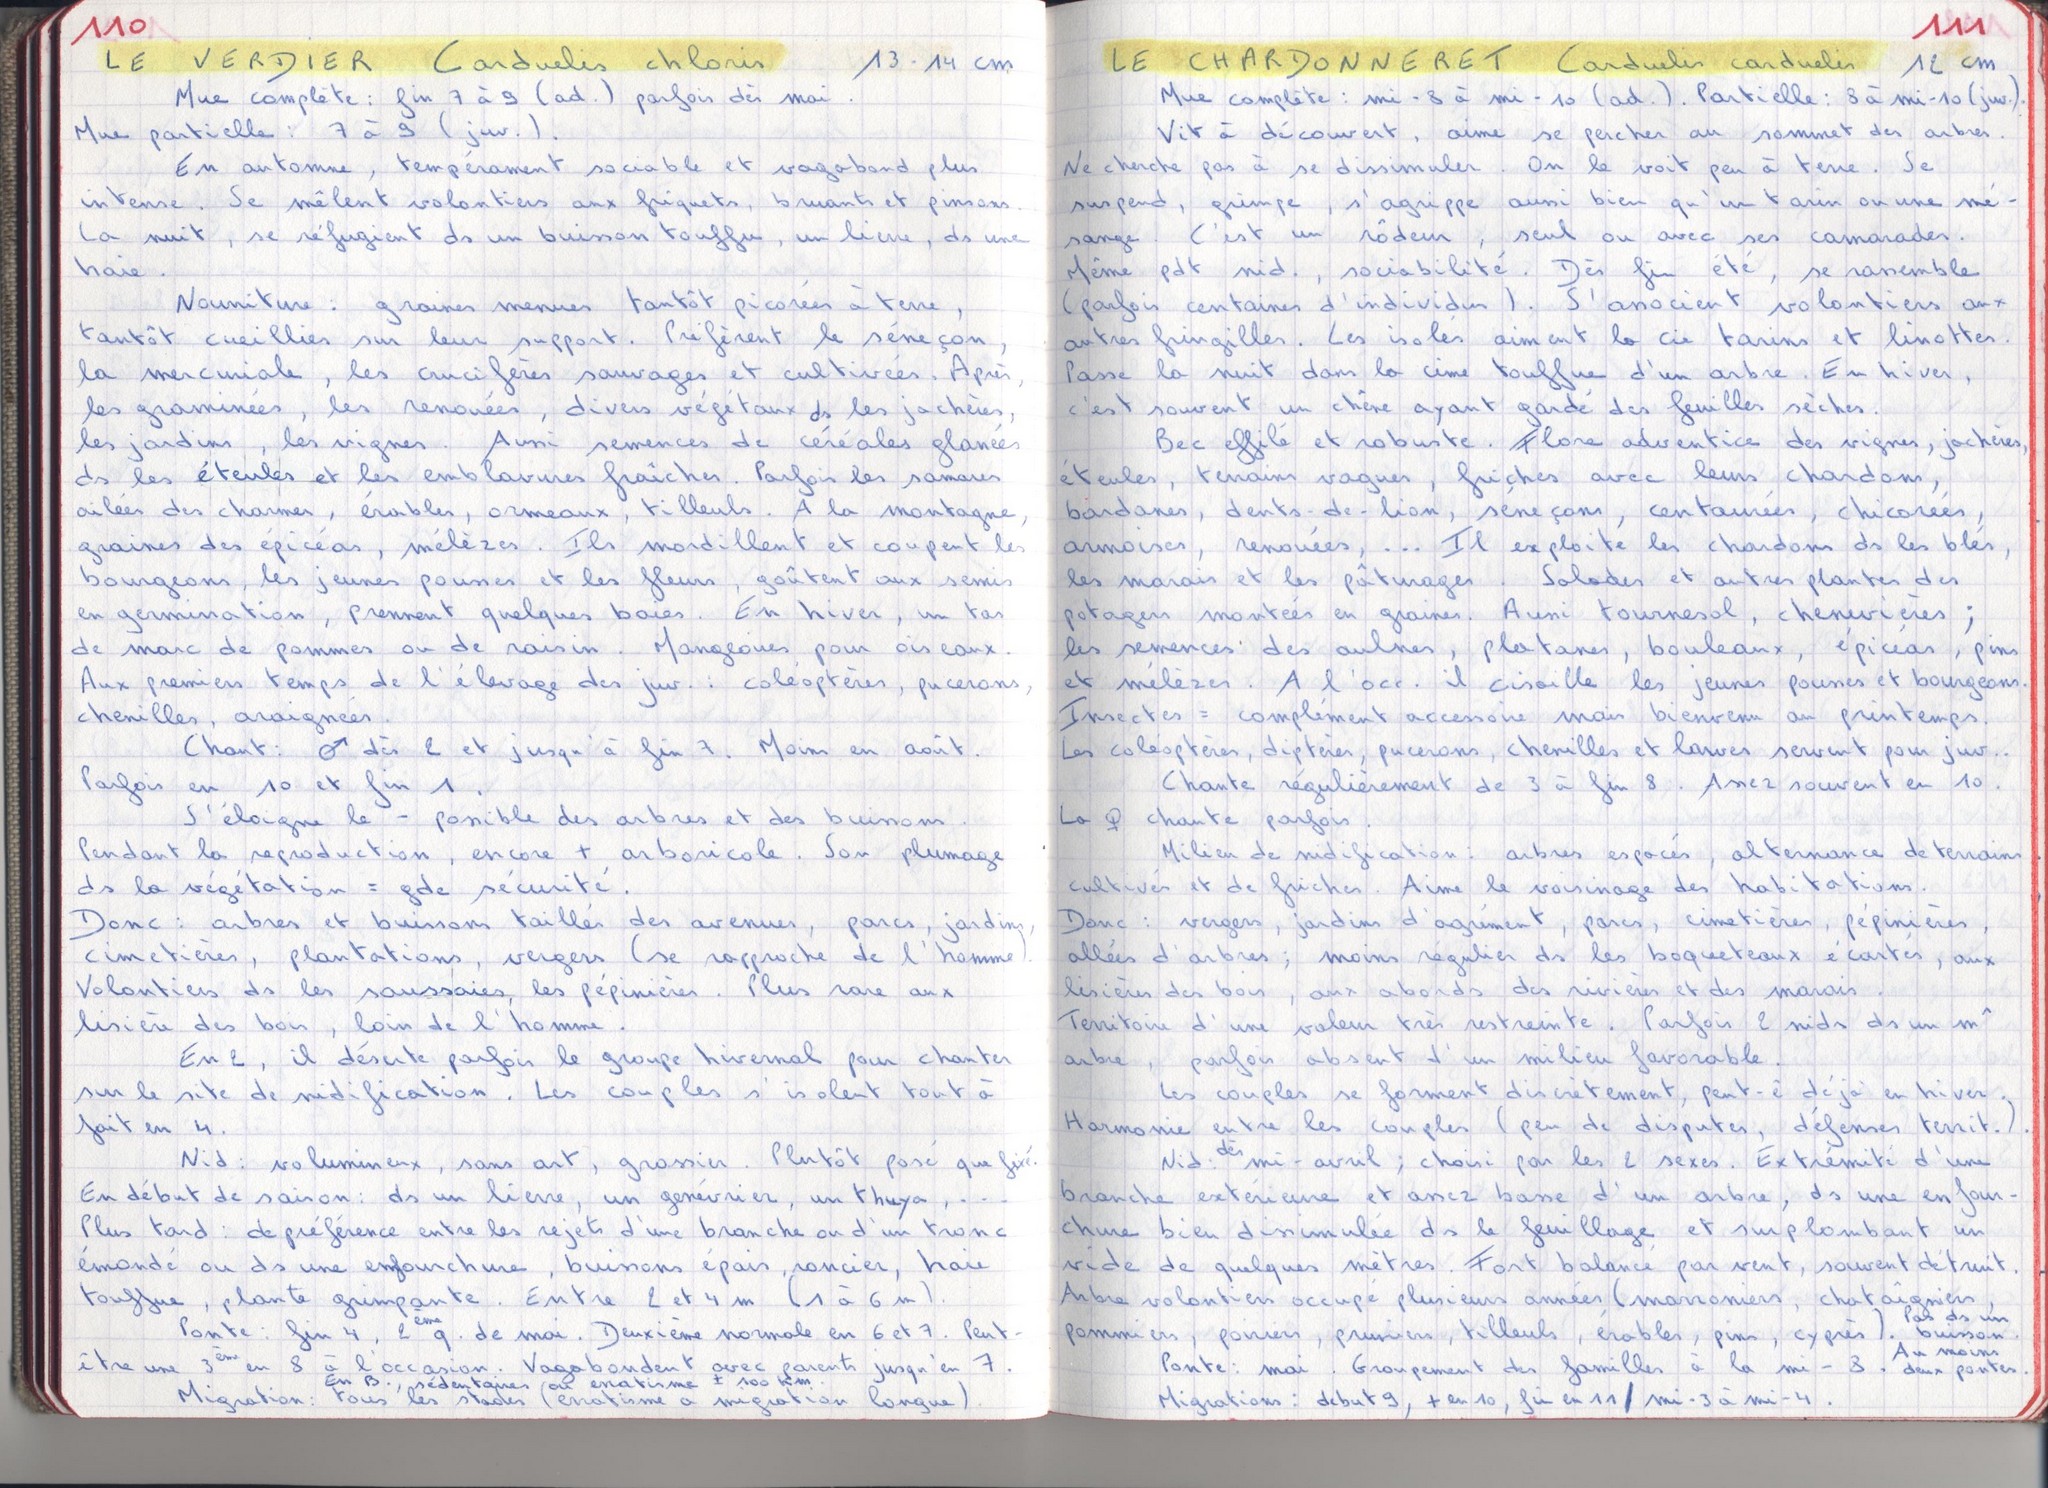 110
LE VERDIER Carduelis chloris 13-14 cm
Mue complète : fin 7 à 9 (ad.) parfois dès mai.
Mue partielle : 7 à 9 (juv.).
En automne, tempérament sociable et vagabond plus
intense. Se mêlent volontiers aux friquets, bruants et pinsons.
La nuit, se réfugient ds un buisson touffu, un lierre, ds une
haie.
Nourriture : graines menues tantôt picorées à terre,
tantôt cueillies sur leur support. Préfèrent le séneçon,
la mercuriale, les crucifères sauvages et cultivées. Après,
les graminées, les renouées, divers végétaux ds les jachères,
les jardins, les vignes. Aussi semences de céréales glanées
ds les éteules et les emblavures fraîches. Parfois les samares
ailées des charmes, érables, ormeaux, tilleuls. A la montagne,
graines des épicéas, mélèzes. Ils mordillent et coupent les
bourgeons, les jeunes pousses et les fleurs, goûtent aux semis
en germination, prennent quelques baies. En hiver, un tas
de marc de pommes ou de raisin. Mangeoires pour oiseaux.
Aux premiers temps de l'élevage des juv. : coléoptères, pucerons,
chenilles, araignées.
Chant : ♂ dès 2 et jusqu'à fin 7. Moins en août.
Parfois en 10 et fin 1.
S'éloigne le - possible des arbres et des buissons.
Pendant la reproduction, encore + arboricole. Son plumage
ds la végétation = gde sécurité.
Donc : arbres et buissons taillés des avenues, parcs, jardins,
cimetières, plantations, vergers (se rapproche de l'homme).
Volontiers ds les saussaies, les pépinières. Plus rare aux
lisière des bois, loin de l'homme.
En 2, il déserte parfois le groupe hivernal pour chanter
sur le site de nidification. Les couples s'isolent tout à
fait en 4.
Nid : volumineux, sans art, grossier. Plutôt posé que fixé.
En début de saison : ds un lierre, un genévrier, un thuya, ...
Plus tard : de préférence entre les rejets d'une branche ou d'un tronc
émondé ou ds une enfourchure, buissons épais, roncier, haie
touffue, plante grimpante. Entre 2 et 4 m (1 à 6 m).
Ponte : fin 4, 2ème q. de mai. Deuxième normale en 6 et 7. Peut-
être une 3ème en 8 à l'occasion. Vagabondent avec parents jusqu'en 7.
En B., sédentaires (ou erratisme ± 100 km.
Migration : tous les stades (erratisme à migration longue).
111
LE CHARDONNERET Carduelis carduelis 12 cm
Mue complète : mi-8 à mi-10 (ad.). Partielle : 8 à mi-10 (juv.).
Vit à découvert, aime se percher au sommet des arbres.
Ne cherche pas à se dissimuler. On le voit peu à terre. Se
suspend, grimpe, s'agrippe aussi bien qu'un tarin ou une mé-
sange. C'est un rôdeur, seul ou avec ses camarades.
Même pdt nid., sociabilité. Dès fin été, se rassemble
(parfois centaines d'individus). S'associent volontiers aux
autres fringilles. Les isolés aiment la cie tarins et linottes.
Passe la nuit dans la cime touffue d'un arbre. En hiver,
c'est souvent un chêne ayant gardé des feuilles sèches.
Bec effilé et robuste. Flore adventice des vignes, jachères,
éteules, terrains vagues, friches avec leurs chardons,
bardanes, dents-de-lion, séneçons, centaurées, chicorées,
armoises, renouées, ... Il exploite les chardons ds les blés,
les marais et les pâturages. Salades et autres plantes des
potagers montées en graines. Aussi tournesol, chenevières ;
les semences des aulnes, platanes, bouleaux, épicéas, pins
et mélèzes. A l'occ. il cisaille les jeunes pousses et bourgeons.
Insectes = complément accessoire mais bienvenu au printemps.
Les coléoptères, diptères, pucerons, chenilles et larves servent pour juv..
Chante régulièrement de 3 à fin 8. Assez souvent en 10.
La ♀ chante parfois.
Milieu de nidification : arbres espacés, alternance de terrains
cultivés et de friches. Aime le voisinage des habitations.
Donc : vergers, jardins d'agrément, parcs, cimetières, pépinières,
allées d'arbres ; moins régulier ds les boqueteaux écartés, aux
lisières des bois, aux abords des rivières et des marais.
Territoire d'une valeur très restreinte. Parfois 2 nids ds un m^
arbre, parfois absent d'un milieu favorable.
Les couples se forment discrètement, peut-ê déjà en hiver.
Harmonie entre les couples (peu de disputes, défenses territ.).
Nid : dès mi-avril ; choisi par les 2 sexes. Extrémité d'une
branche extérieure et assez basse d'un arbre, ds une enfour-
chure bien dissimulée ds le feuillage et surplombant un
vide de quelques mètres. Fort balancé par vent, souvent détruit.
Arbre volontiers occupé plusieurs années (marronniers, chataîgniers,
pommiers, poiriers, pruniers, tilleuls, érables, pins, cyprès). Pas ds un buisson.
Ponte : mai. Groupement des familles à la mi-8. Au moins deux pontes.
Migrations : début 9, + en 10, fin en 11 / mi-3 à mi-4.